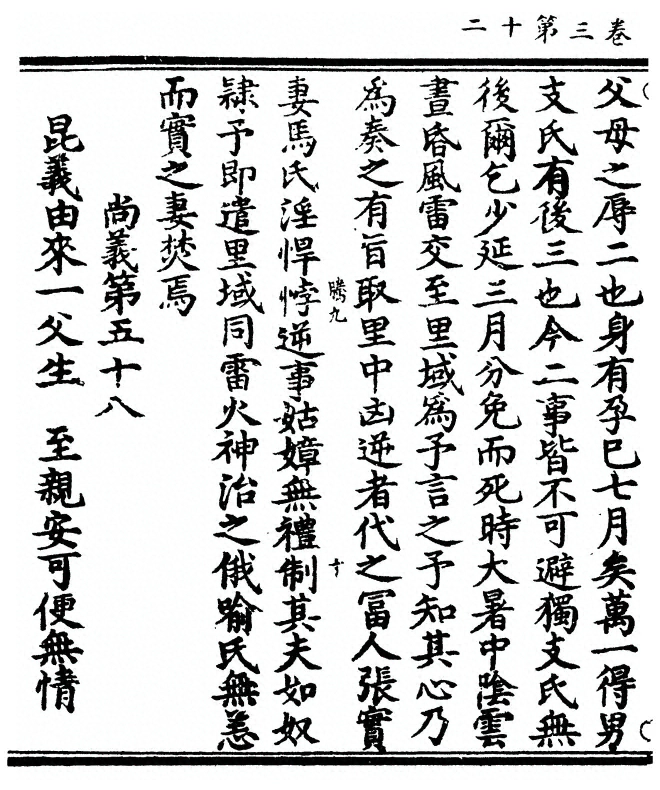 卷三第十二
父母之辱二也身有孕巳七月矣萬一得男
支氏有後三也今二事皆不可避獨支氏無
後爾乞少延三月分免而死時大暑中陰雲
晝昏風雷交至里域為予言之予知其心乃
為奏之有旨取里中凶逆者代之冨人張實
妻馬氏淫悍悖逆事姑嫜無禮制其夫如奴
隷予即遣里域同雷火神治之俄喻氏無恙
而實之妻焚焉
尚義第五十八
昆義由來一父生 至親安可便無情
騰九